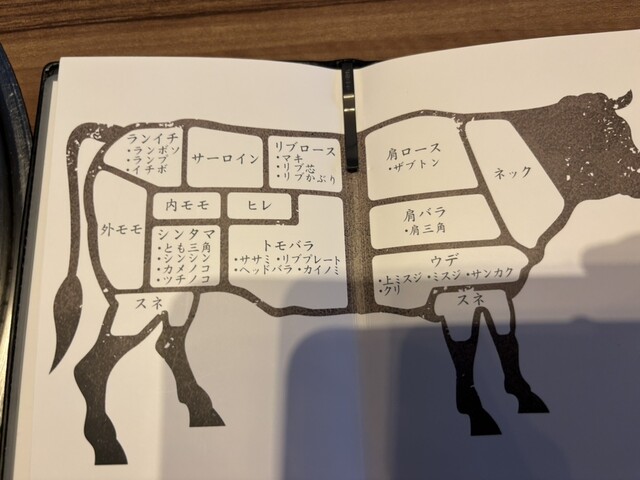 ランイチ
・ランボソ
・ランプ
・イチボ
サーロイン
リブロース
・マキ
・リブ芯
・リブかぶり
肩ロース
・ザブトン
ネック
外モモ
内モモ
ヒレ
肩バラ
・肩三角
シンタマ
・とも三角
・シンシン
・カメノコ
・ツチノコ
トモバラ
・ササミ・リブプレート
・ヘッドバラ・カイノミ
ウデ
・上ミスジ・ミスジ・サンカク
・クリ
スネ
スネ